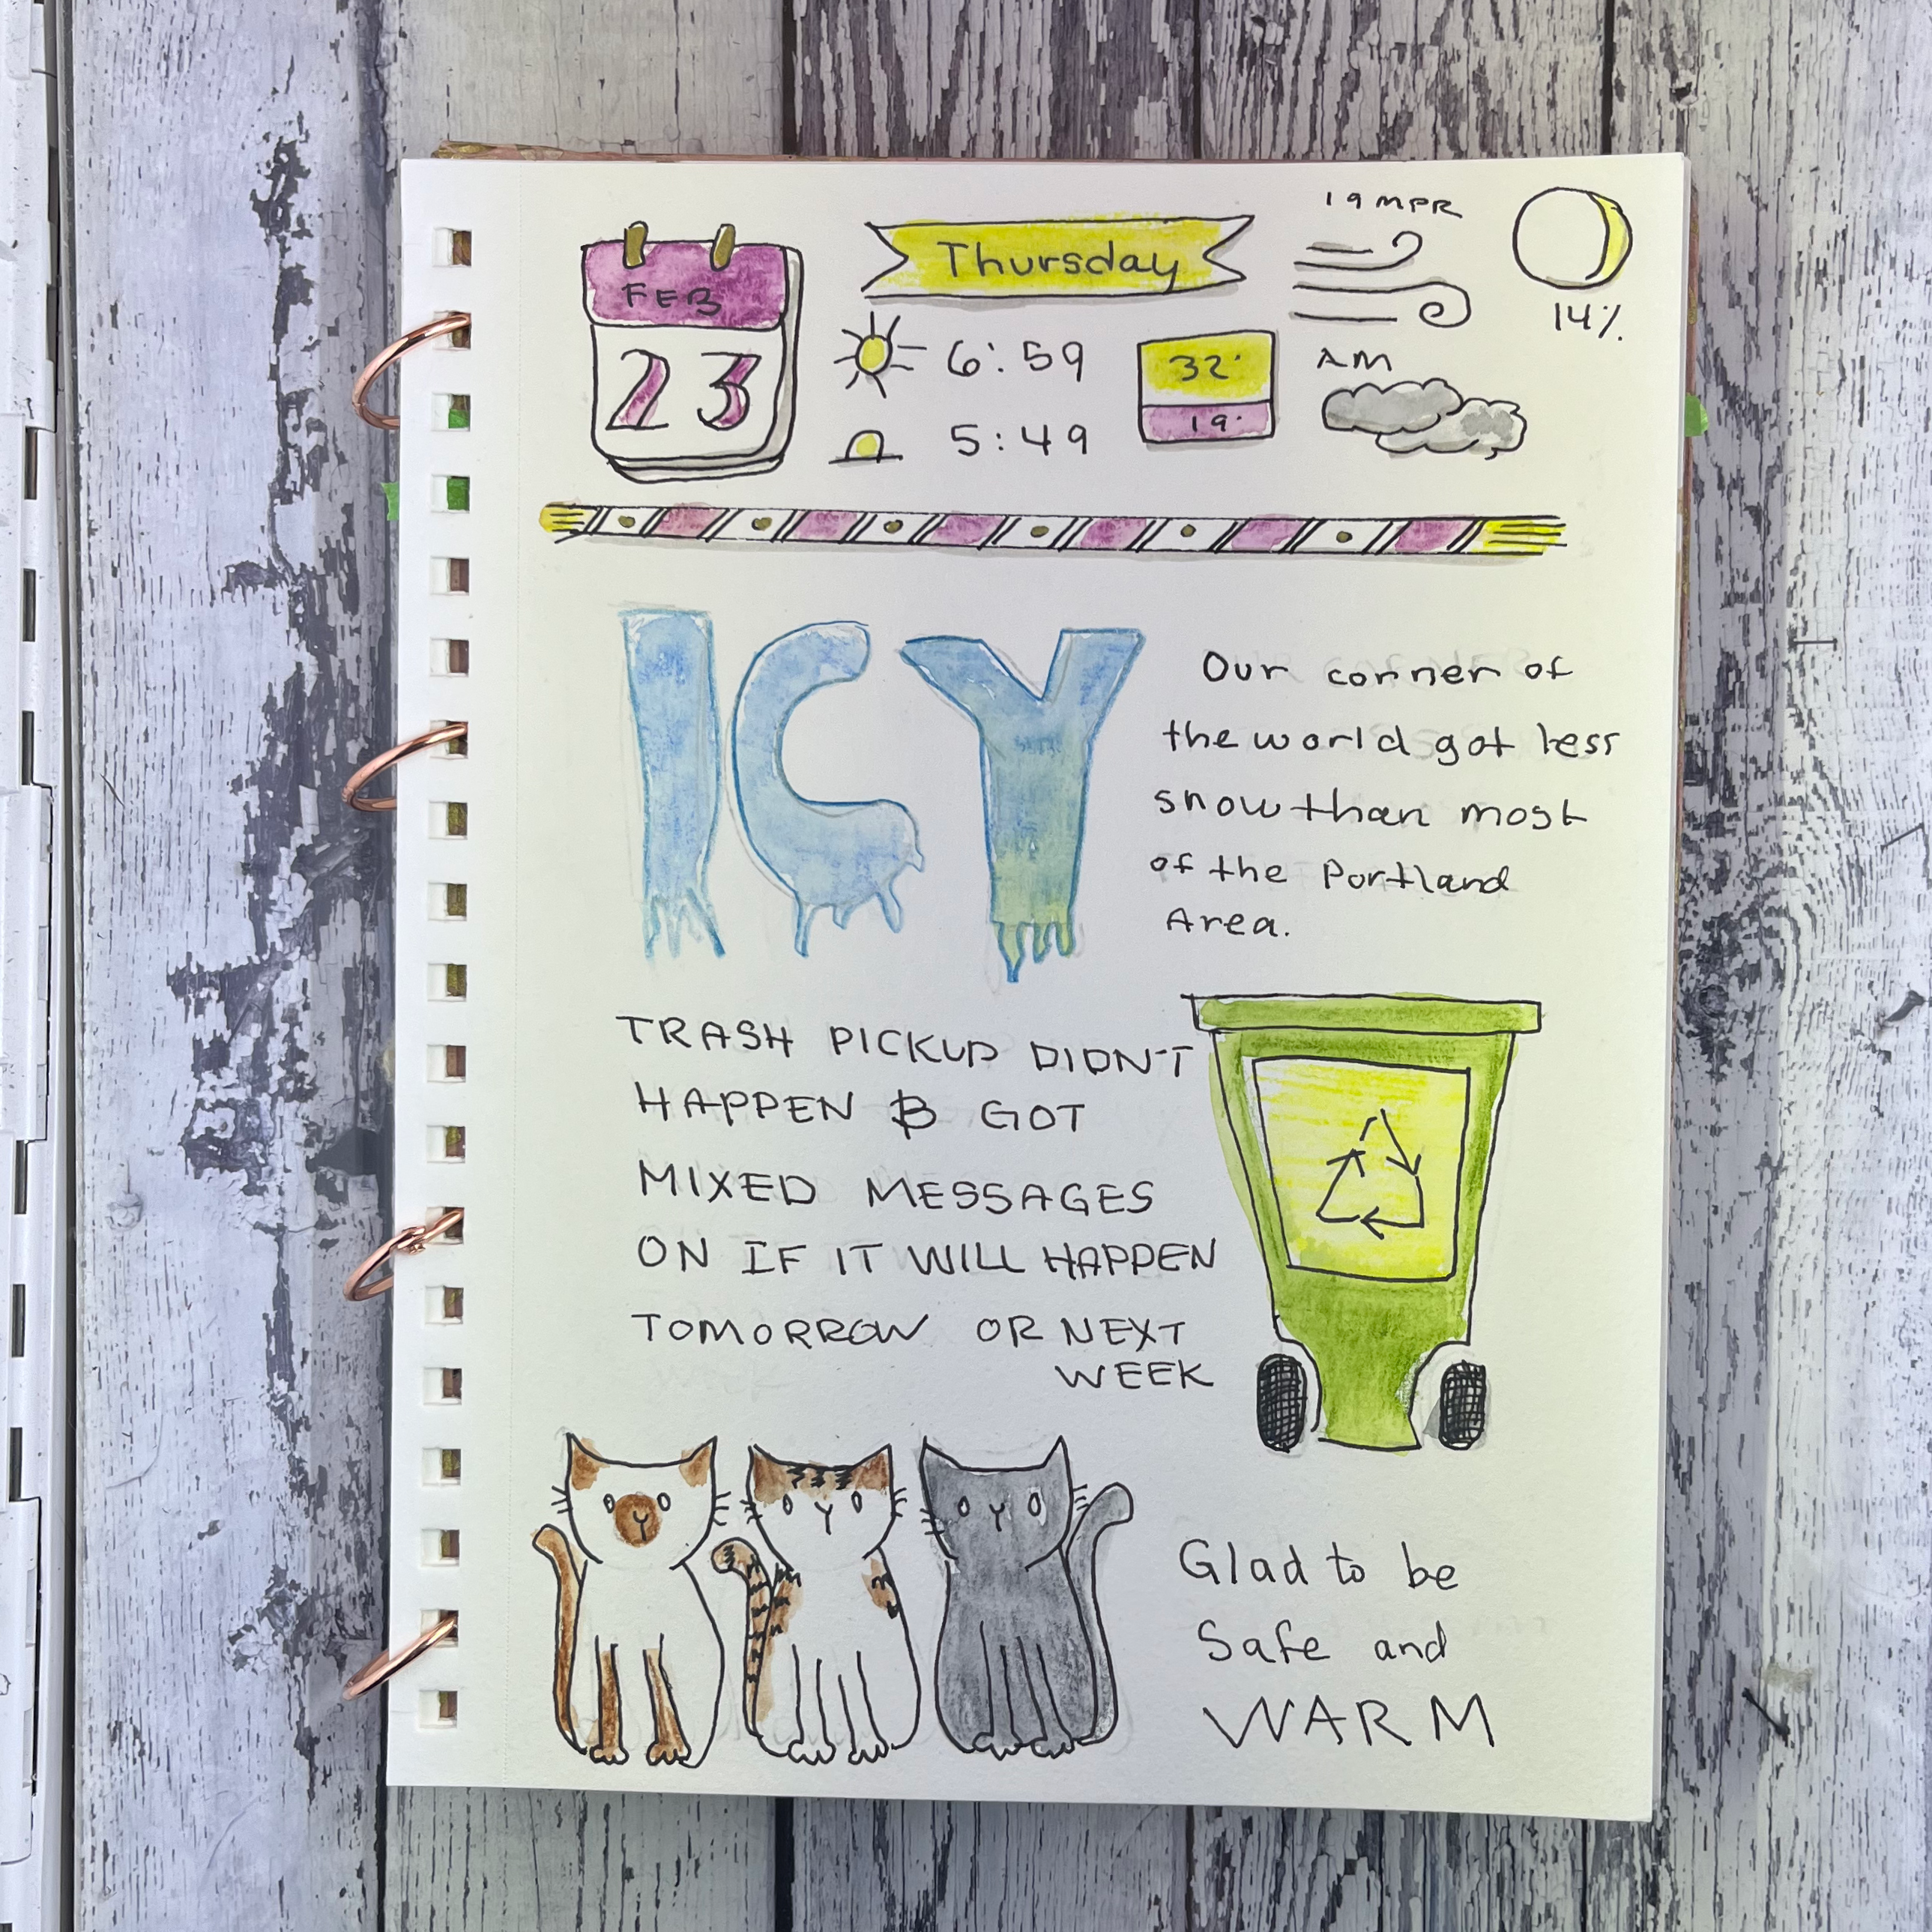 FEB
23
Thursday
6:59
5:49
32°
19°
19 MPR
AM
14%
ICY
Our corner of
the world got less
snow than most
of the Portland
Area.
TRASH PICKUP DIDN'T
HAPPEN & GOT
MIXED MESSAGES
ON IF IT WILL HAPPEN
TOMORROW OR NEXT
WEEK
Glad to be
Safe and
WARM